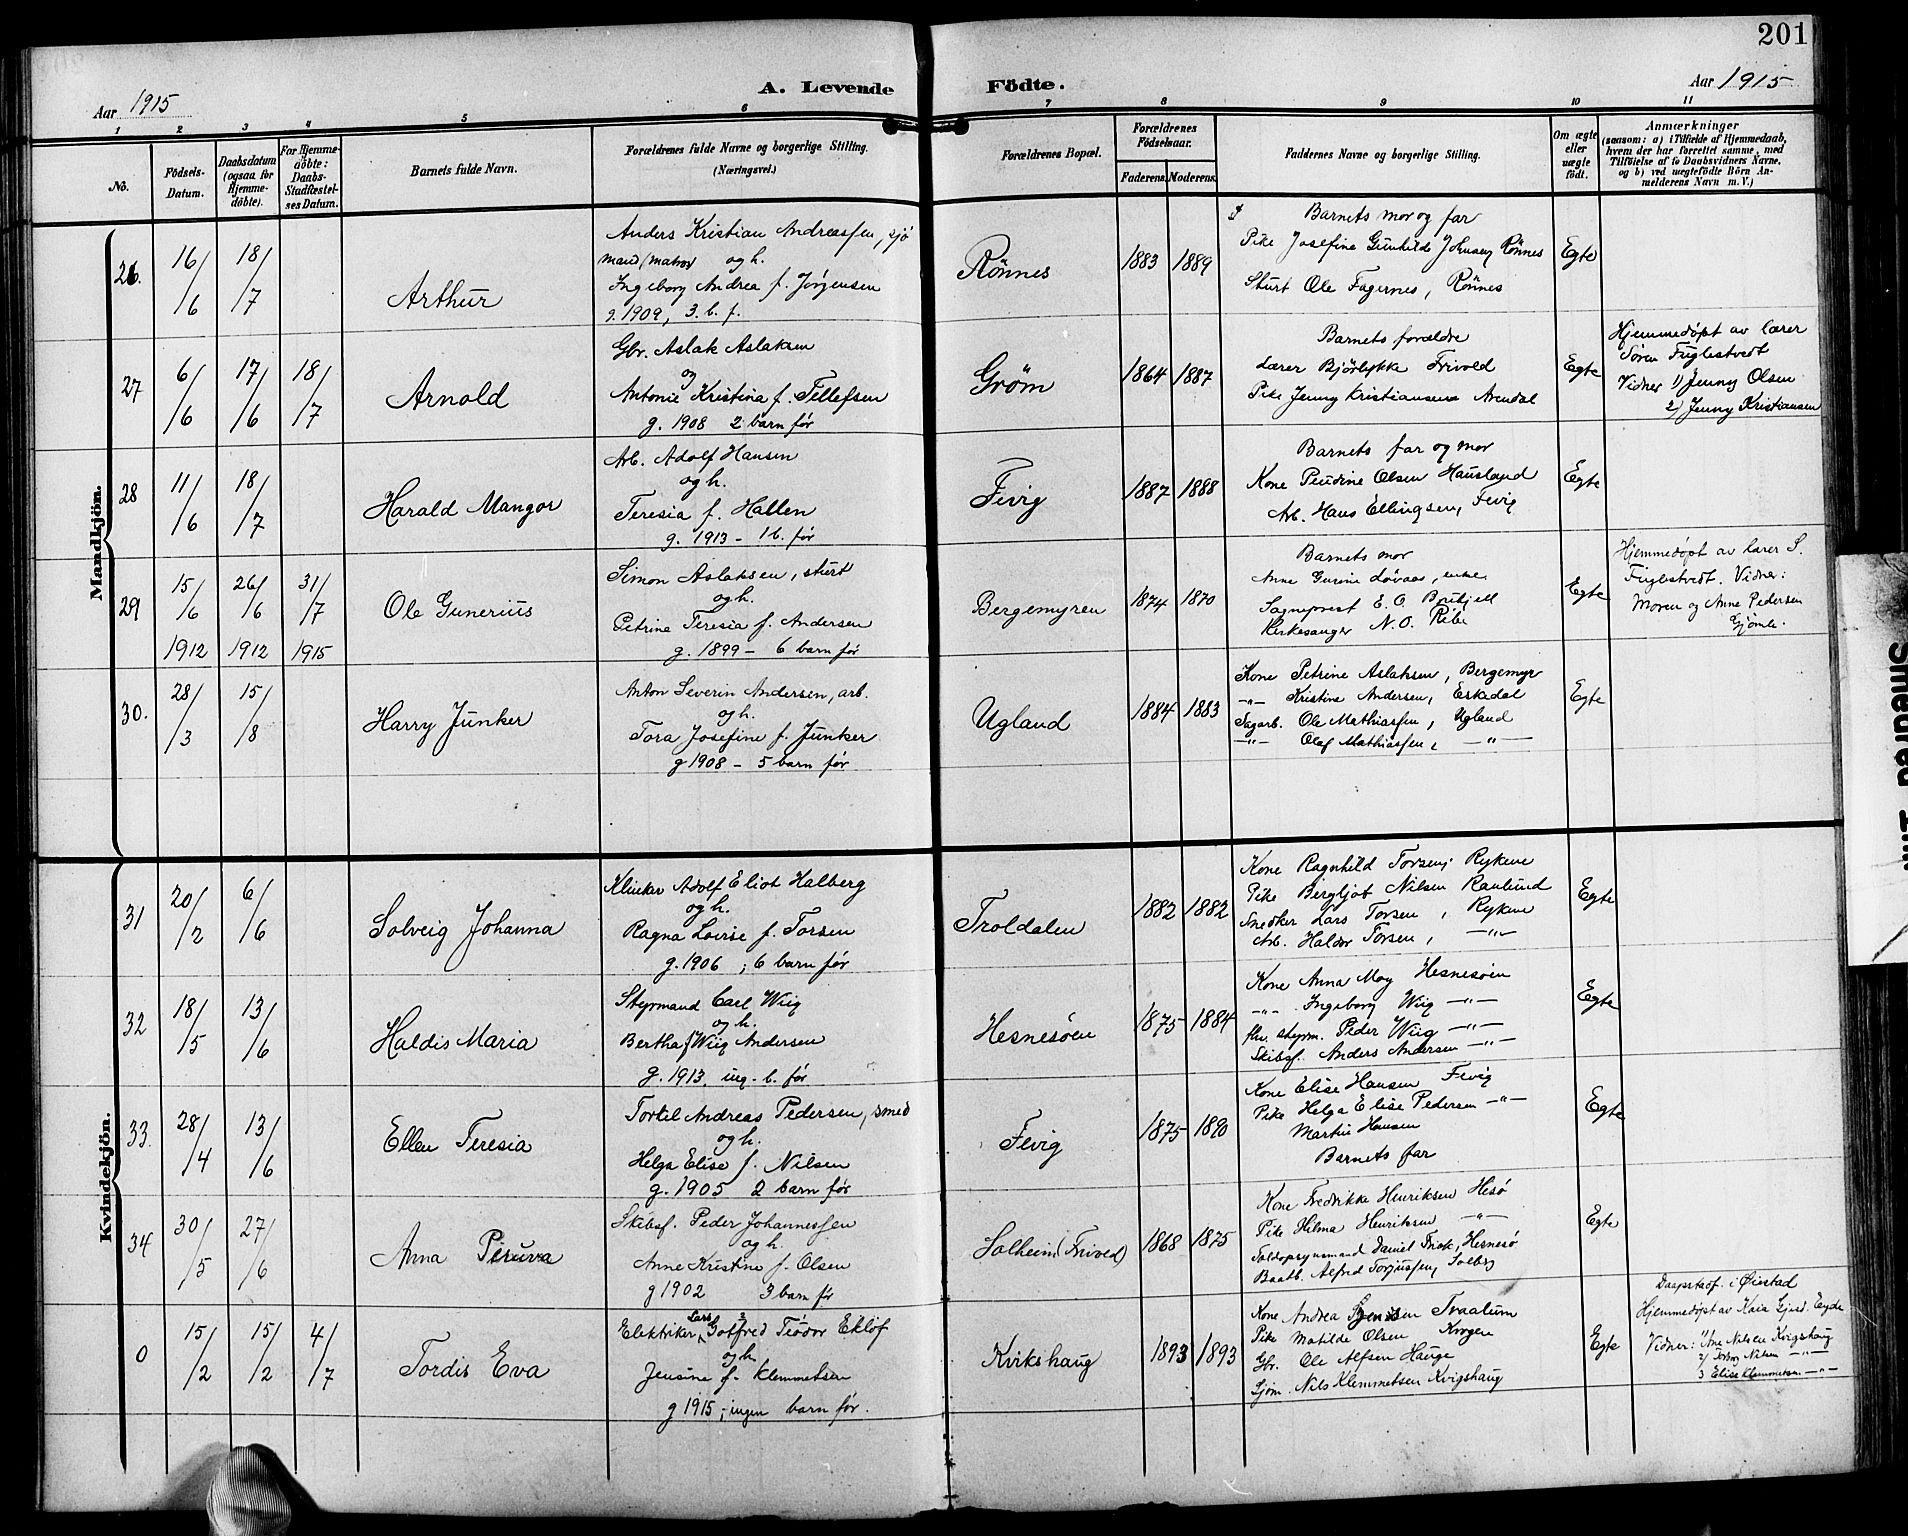 201
Aar 1915
A. Levende Födte.
Aar 1915
1 2 3 4 5 6 7 8 9 10 11
No.
Födsels-
Datum.
Daabsdatum
(ogsaa for
Hjemme-
döbte).
For Hjemme-
döbte:
Daabs-
Stadfæstel-
ses Datum.
Barnets fulde Navn.
Forældrenes fulde Navne og borgerlige Stilling.
(Næringsvei.)
Forældrenes Bopæl.
Forældrenes
Födselsaar.
Faderens. Moderens.
Faddernes Navne og borgerlige Stilling.
Om ægte
eller
uægte
födt.
Anmærkninger
(saasom: a) i Tilfælde af Hjemmedaab,
hvem der har forrettet samme, med
Tilföielse af to Daabsvidners Navne,
og b) ved uægtefödte Börn An-
melderens Navn m. V.)
Mandkjön.
26.
16/6
18/7
Arthur
Anders Kristian Andreassen, sjö
mand (matros) og h.
Ingeborg Andrea f. Jørgensen
g. 1909, 3. b. f.
Rönnes
1883 1889
Barnets mor og far
Pike Josefine Gunhilde Johnsen Rönnes
Sturt Ole Fagernes, Rönnes
Egte
27
6/6
17/6
18/7
Arnold
Gbr. Aslak Aslaksen
og
Antonie Kristina f. Tellefsen
g. 1908 2 barn før
Grøm
1864 1887
Barnets forældre
Lærer Björlykke Frivold
Pike Jenny Kristiansen Arendal
Egte
Hjemmedøpt av lærer
Søren Fuglestvedt
Vidner 1) Jenny Olsen
2) Jenny Kristiansen
28
11/6
18/7
Harald Mangor
Arb. Adolf Hansen
og h.
Teresia f. Hallen
g. 1913 - 1 b. før
Fevig
1887 1888
Barnets far og mor
Kone Olsen Hausland
Arb. Hans Ellingsen, Fevig
Egte
29
15/6
1912
26/6
1912
31/7
1915
Ole Gunerius
Simon Aslaksen, sturt
og h.
Petrine Teresia f. Andersen
g. 1899 - 6 barn før
Bergemyren
1874 1870
Barnets mor
Anne Gurine Løvaas, enke
Sogneprest E. O.
Kirkesanger N. O. Ribe
Egte
Hjemmedøpt av lærer S.
Fuglestvedt. Vidner:
Moren og Anne Pedersen
Gjømle.
30.
28/3
15/8
Harry Junker
Anton Severin Andersen, arb.
og h.
Tora Josefine f. Junker
g 1908 - 5 barn før
Ugland
1884 1883
Kone Petrine Aslaksen, Bergemyr
-„- Kristine Andersen, Eskedal
Sagarb. Ole Mathiassen, Ugland
-„- Olaf Mathiassen, -„-
Egte
Kvindekjön.
31
20/2
6/6
Solveig Johanna
Klinker Adolf Eliot Halberg
og h.
Ragna Lovise f. Torsen
g. 1906 ; 6 barn før
Troldalen
1882 1882
Kone Ragnhild Torsen, Rykene
Pike Bergljot Nilsen Raulund
Snedker Lars Torsen, Rykene
Arb. Haldor Torsen, -„-
Egte
32
18/5
13/6
Haldis Maria
Styrmand Carl Wiig
og h.
Bertha f Wiig Andersen
g. 1913, ing. b. før
Hesnesøen
1875 1884
Kone Anna May Hesnesøen
-„- Ingeborg Wiig -„-
fhv. styrm. Peder Wiig -„-
Skibsf. Anders Andersen -„-
Egte
33.
28/4
13/6
Ellen Teresia
Tortil Andreas Pedersen, smed
og h.
Helga Elise f. Nilsen
g. 1905 2 barn før
Fevig
1875 1890
Kone Elise Hansen Fevig
Pike Helga Elise Pedersen -„-
Martin Hansen
Barnets far
Egte
34
30/5
27/6
Anna Petuva
Skibsf. Peder Johannessen
og h.
Anne Kristine f. Olsen
g 1902 3 barn før
Solheim (Frivold)
1868 1875
Kone Fredrikke Henriksen Hesø
Pike Hilma Henriksen -„-
Toldopsynsmand Daniel Hesnesø
Baatb. Alfred Torjussen, Solberg
Egte
0
15/2
15/2
4/7
Tordis Eva
Elektriker Lars Gotfred Teodor Eklöf
og h.
Jensine f. Klemmetsen
g 1915 ; ingen barn før.
Kvikshaug
1893 1893
Kone Andrea Traalum
Pike Matilde Olsen Krogen
Gbr. Ole Alfsen Hauge
Sjöm. Nils Klemmetsen Kvigshaug
Egte
Daapstadf. i Øiestad
Hjemmedøpt av Kaia Eyde
Vidner: 1) Ane Nilsen Kvigshaug
2) Nilsen -„-
3 Elise Klemmetsen -„-